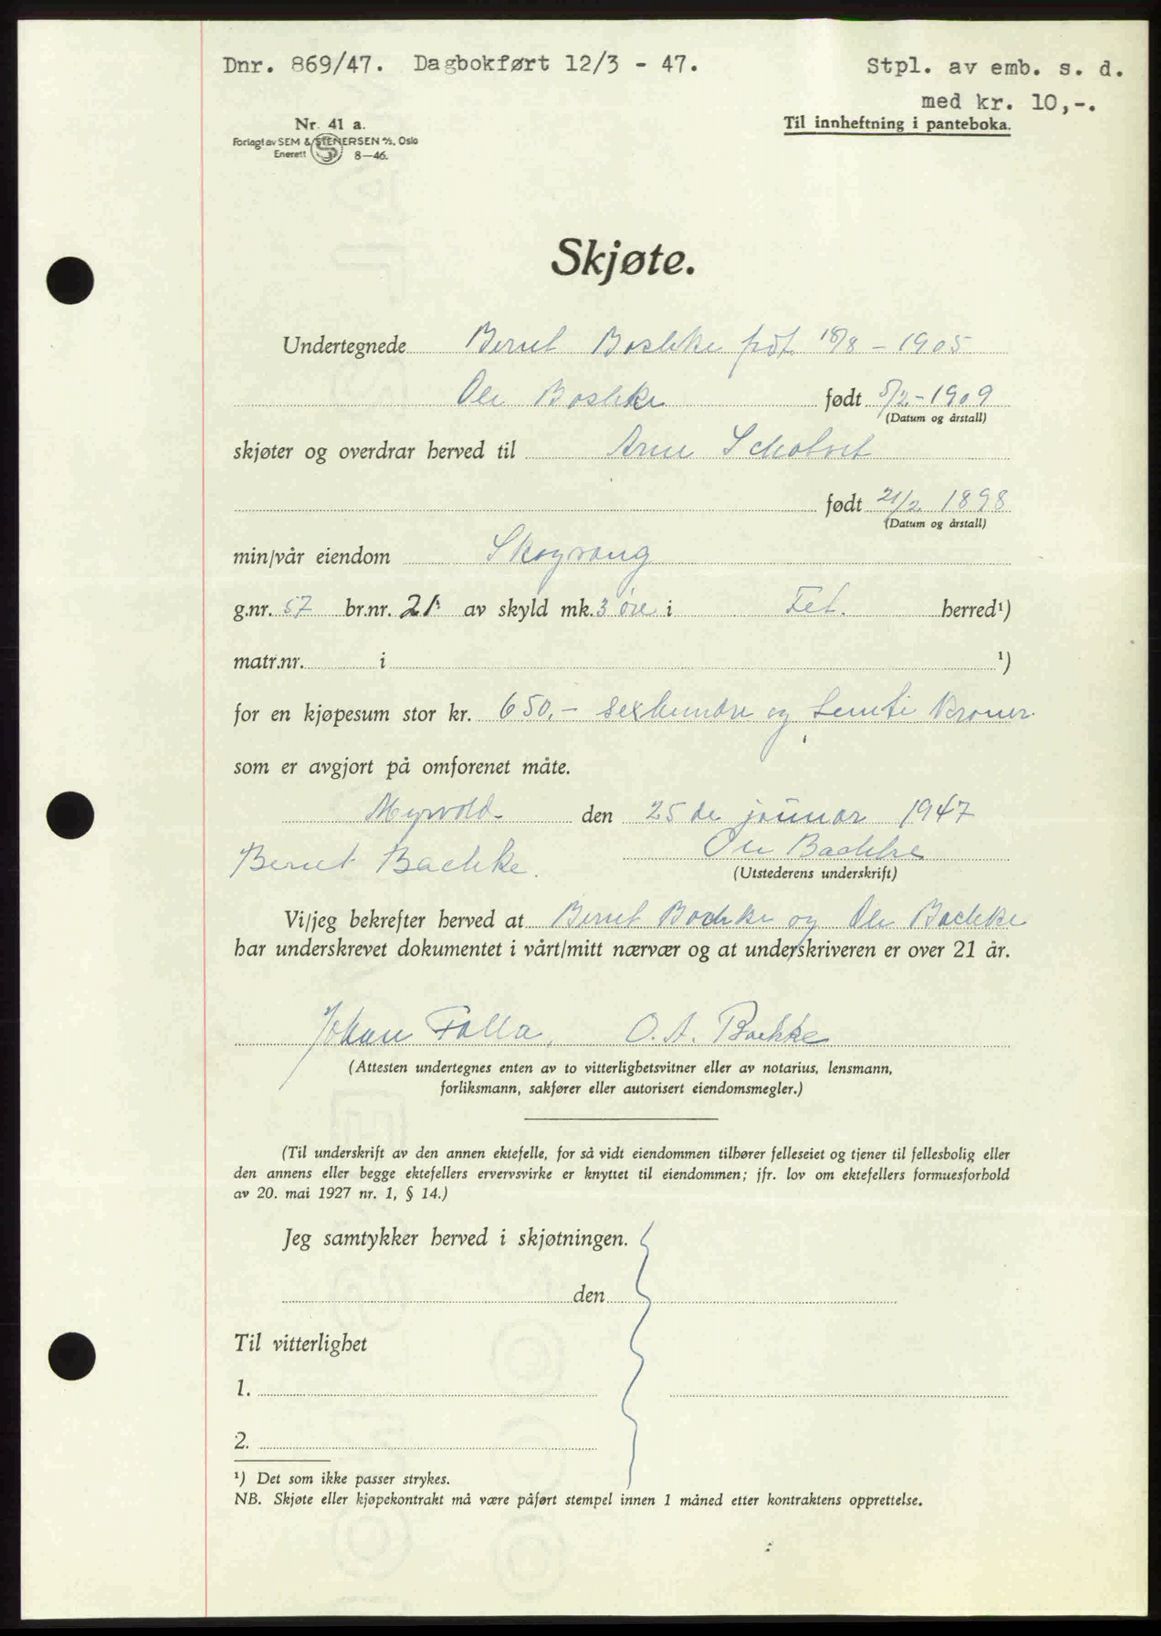 Dnr. 869/47. Dagbokført 12/3 - 47.
Stpl. av emb. s. d.
med kr. 10,-.
Nr. 41 a.
Til innheftning i panteboka.
Forlagt av SEM & STENERSEN A/S, Oslo
Enerett S 8—46.
Skjøte.
Undertegnede Bernt Bachke født 18/8 - 1905
Ole Bachke født 5/2 - 1909
(Datum og årstall)
skjøter og overdrar herved til Arne
født 21/2 1898
(Datum og årstall)
min/vår eiendom Skogvang
g.nr. 57 br.nr. 21 av skyld mk. 3 øre i Fet. herred¹)
matr.nr. i ¹)
for en kjøpesum stor kr. 650,- sekshundre og femti Kroner
som er avgjort på omforenet måte.
Myrvold den 25 de januar 1947
Bernt Bachke. Ole Bachke
(Utstederens underskrift)
Vi/jeg bekrefter herved at Bernt Bachke og Ole Bachke
har underskrevet dokumentet i vårt/mitt nærvær og at underskriveren er over 21 år.
Johan Falla, O. A. Bachke
(Attesten undertegnes enten av to vitterlighetsvitner eller av notarius, lensmann,
forliksmann, sakfører eller autorisert eiendomsmegler.)
(Til underskrift av den annen ektefelle, for så vidt eiendommen tilhører felleseiet og tjener til fellesbolig eller
den annens eller begge ektefellers ervervsvirke er knyttet til eiendommen; jfr. lov om ektefellers formuesforhold
av 20. mai 1927 nr. 1, § 14.)
Jeg samtykker herved i skjøtningen.
den
Til vitterlighet
1.
2.
¹) Det som ikke passer strykes.
NB. Skjøte eller kjøpekontrakt må være påført stempel innen 1 måned etter kontraktens opprettelse.